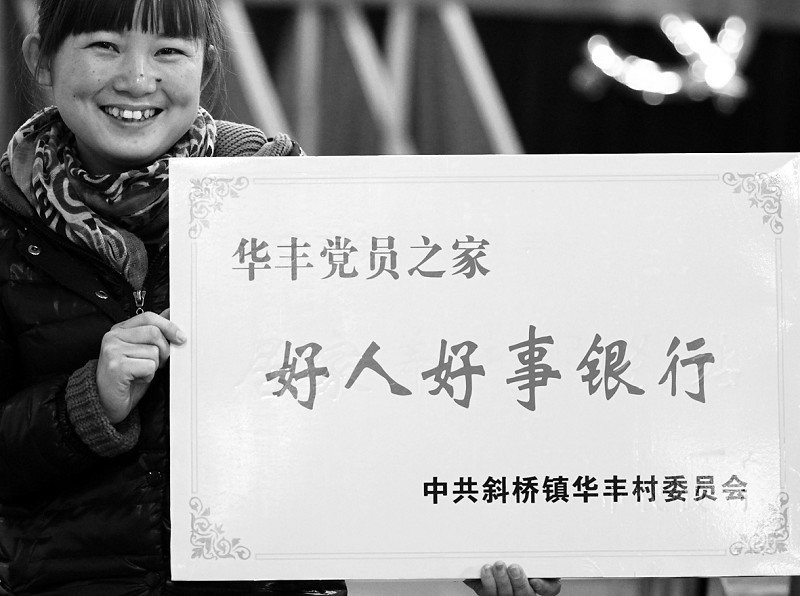 华丰党员之家
好人好事银行
中共斜桥镇华丰村委员会